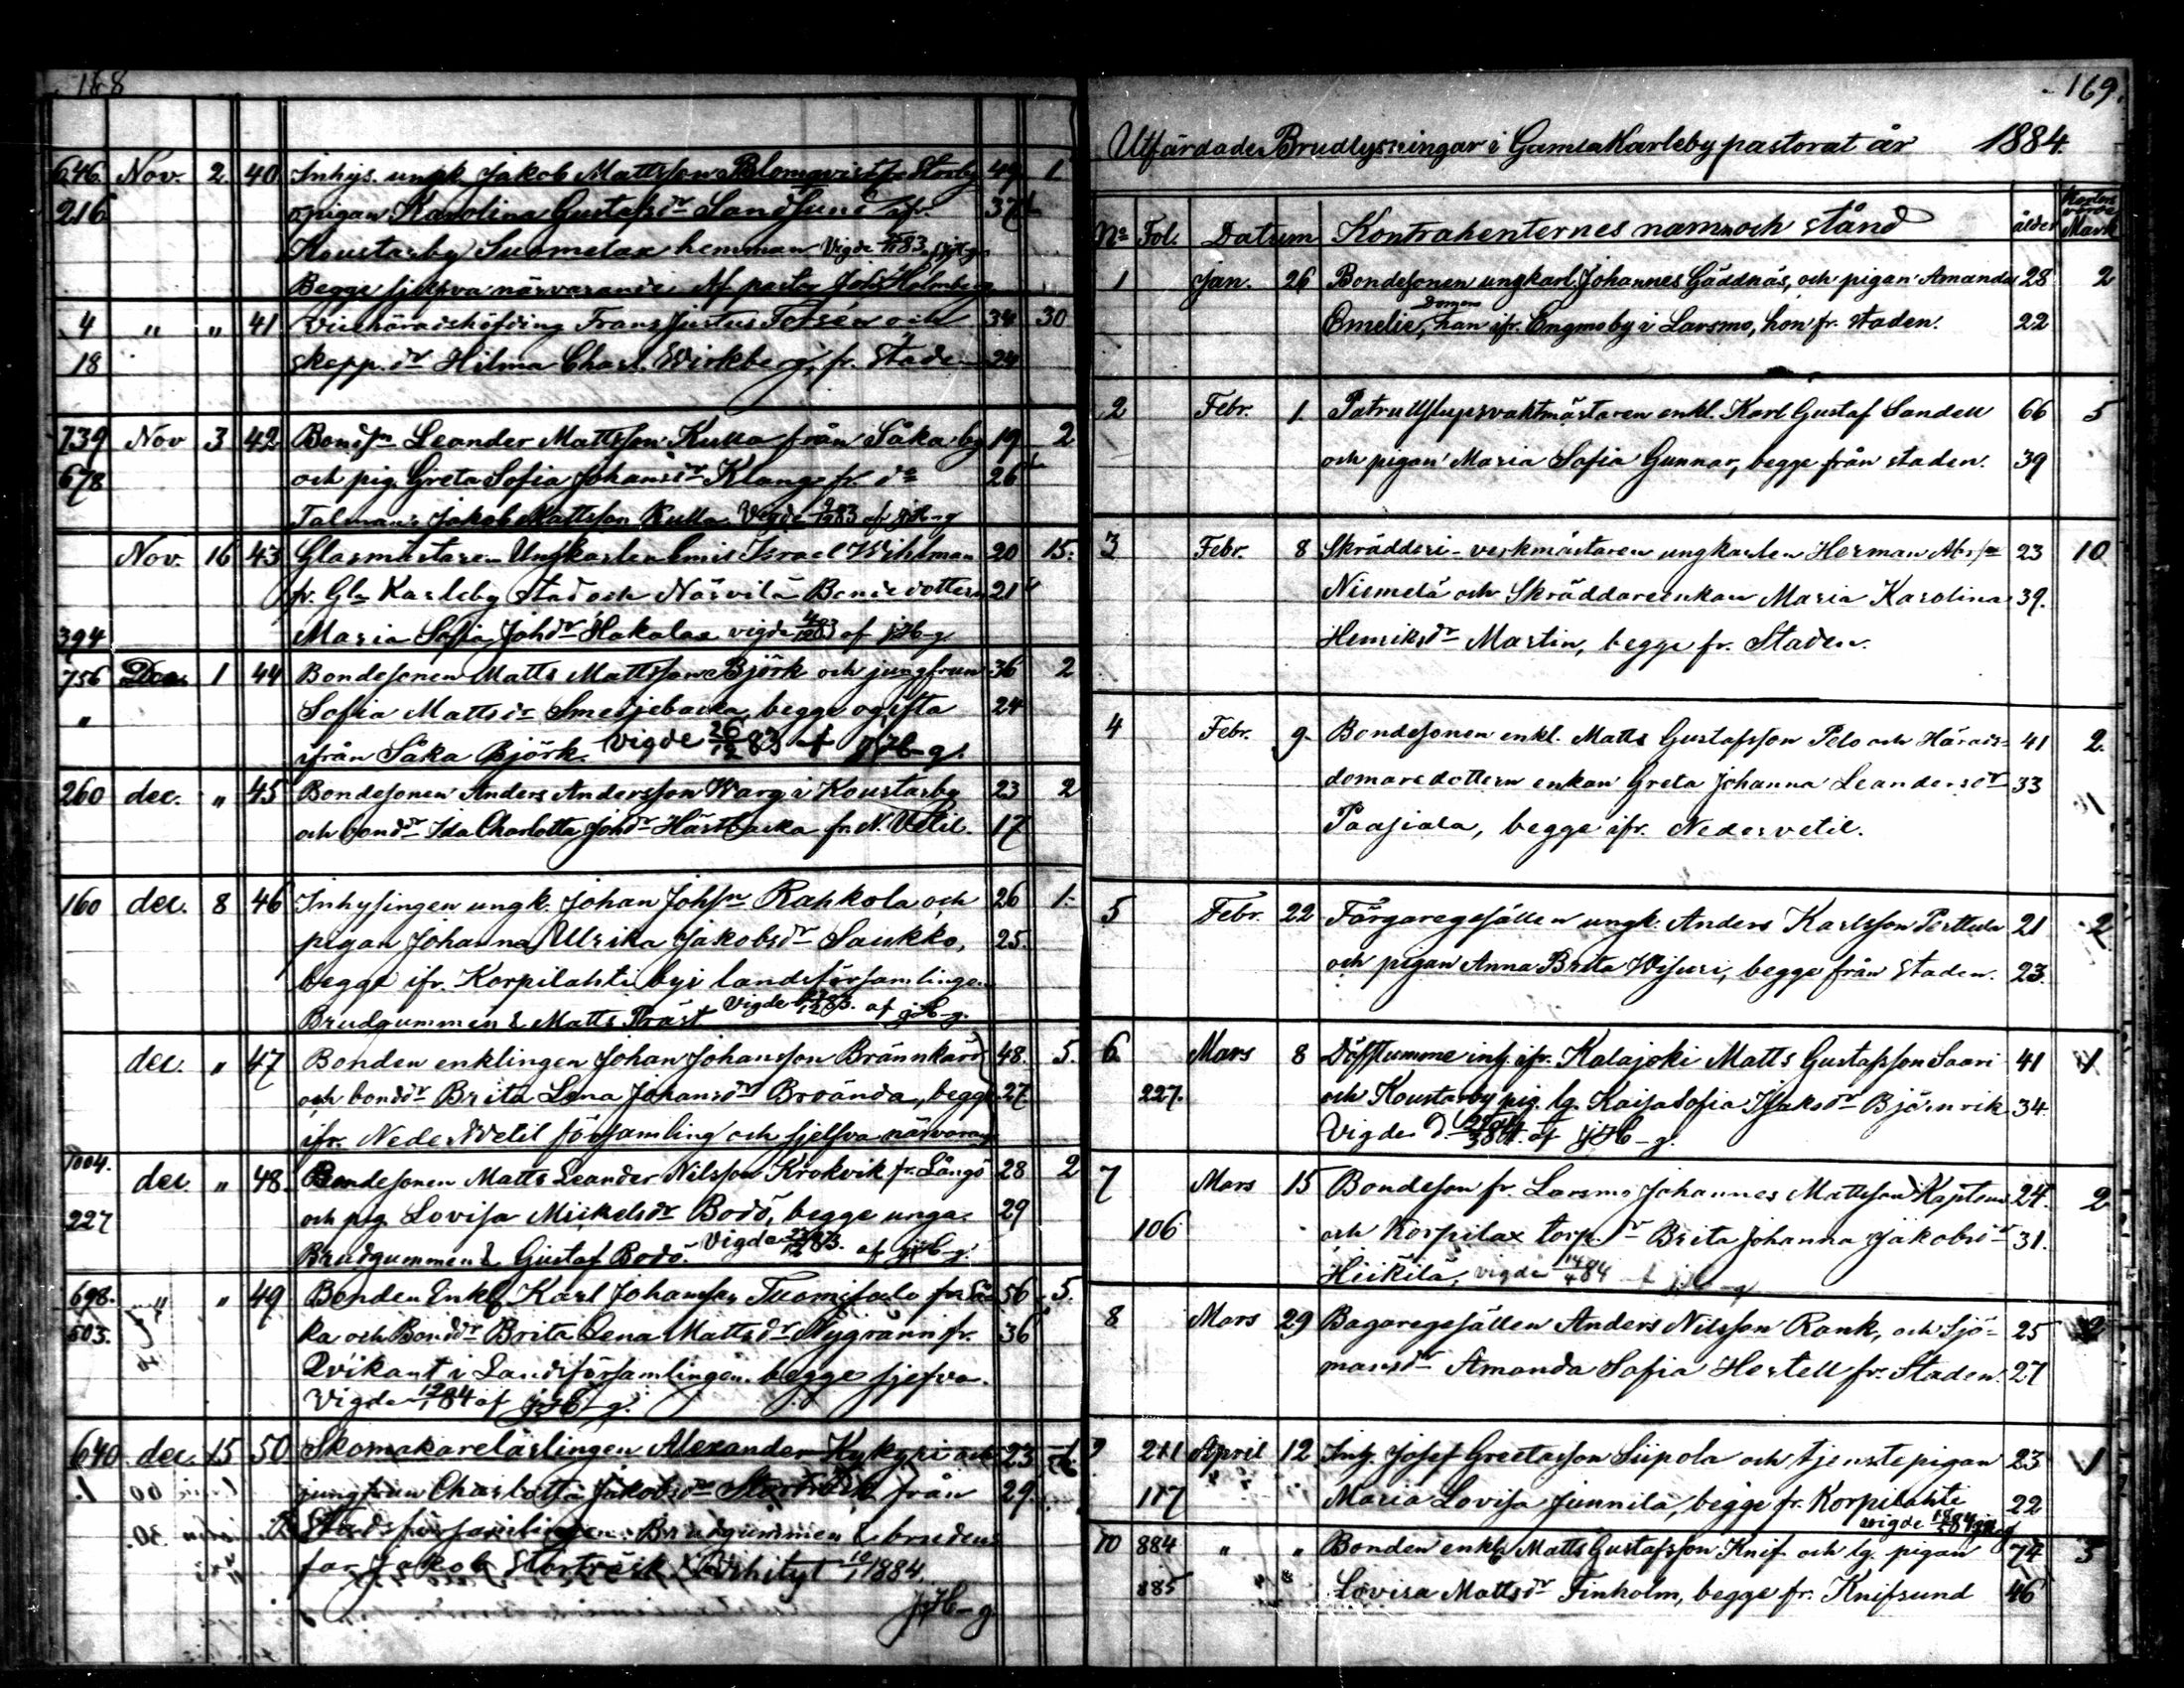 168
646. Nov. 2. 40 Inhys. ungk. Jakob Mattsson Blomqvist fr Storby 49 1.
216 o pigan Karolina Gustafsdr Sandsund ifr. 37
Koustarby Suomelax hemman Vigde 83
Begge sjelfva närvarande. Af pastor Johs Holmberg
4 " " 41 Vicehäradshöfding Frans Justus Forsén och 34 30
18 skepp.dr Hilma Charl. Wirkberg, fr. Staden 24
739 Nov 3 42 Bondsn Leander Mattsson Kulla från Såka by 19 2
678 och pig. Greta Sofia Johansdr Klang fr. do 26
Talman: Jakob Mattsson Kulla Vigde 83 af JHb-g
Nov. 16 43 Glasmästaren Ungkarlen Emil Israel Wihlman 20 15.
fr. Gla Karleby stad och Närvilä Bondedottern 21
394 Maria Sofia Johdr Hakalax vigde 4/12 83 af JHb-g
756 Dec. 1 44 Bondesonen Matts Mattsson Björk och jungfrun 36 2
" Sofia Mattsdr Smedjebacka, begge ogifta 24
ifrån Såka Björk. Vigde 26/12 83 af JHb-g.
260 dec. " 45 Bondesonen Anders Andersson Warg i Koustarby 23 2
och bonddr Ida Charlotta Johdr Härtbacka fr. N. Vetil. 17
160 dec. 8 46 Inhysingen ungk. Johan Johsn Rahkola och 26 1.
pigan Johanna Ulrika Jakobsdr Saukko, 25.
begge ifr. Korpilahti by i landsförsamlingen
Brudgummen & Matts Präst Vigde 83. af JHb-g.
dec. " 47 Bonden enklingen Johan Johansson Brännkärr 48. 5.
och bonddr Brita Lena Johansdr Broända, begge 27.
ifr. Neder Vetil församling och sjelfva närvarande
1004. dec. " 48. Bondesonen Matts Leander Nilsson Krokvik fr. Långö 28 2
227 och pig. Lovisa Mickelsdr Bodö, begge unga. 29
Brudgummen & Gustaf Bodö. Vigde 83. af JHb-g.
698. " " 49 Bonden Enkl. Karl Johansson Tuomisalo fr. Så- 56 5.
503. ka och Bonddr Brita Lena Mattsdr Nygrann fr. 36
Qvikant i Landsförsamlingen. begge sjelfva.
Vigde 84 af JHb-g.
640 dec. 15 50 Skomakarelärlingen Alexander Kykyri och 23 1
jungfrun Charlotta Jakobsdr Storträsk från 29.
Stadsförsamlingen. Brudgummen & brudens
far Jakob Storträsk. Vihityt 10/1 1884.
JHb-g
169.
Utfärdade Brudlysningar i Gamla Karleby pastorat år 1884.
No Fol. Datum Kontrahenternes namn och stånd ålder Mark
1 Jan. 26 Bondesonen ungkarl. Johannes Gäddnäs, och pigan Amanda 28 2
Emelie, han ifr. Engmo by i Larsmo, hon fr. staden. 22
2 Febr. 1. Patrullslupsvaktmästaren enkl. Karl Gustaf Sandell 66 5
och pigan Maria Sofia Gunnar, begge från staden. 39
3 Febr. 8 Skrädderi-verkmästaren ungkarlen Herman Abr.sn 23 10
Niemelä och Skräddareenkan Maria Karolina 39.
Henriksdr Martin, begge fr. Staden.
4 Febr. 9. Bondesonen enkl. Matts Gustafsson Pelo och Härads- 41 2.
domaredottern enkan Greta Johanna Leandersdr 33
Paasiala, begge ifr. Nedervetil.
5 Febr. 22 Färgaregesällen ungk. Anders Karlsson Perttula 21 2
och pigan Anna Brita Wisuri, begge från staden. 23.
6 Mars 8 Döfstumme inh. ifr. Kalajoki Matts Gustafsson Saari 41 1
227. och Koustarby pig. lg. Kaisa Sofia Isaksdr Björnvik 34.
Vigde d. 84. af JHb-g.
7 Mars 15 Bondeson fr. Larsmo Johannes Mattsson Kaptens 24. 2
106. och Korpilax torp.dr Brita Johanna Jakobsdr 31.
Hiikilä, vigde 14/4 84 af JHb-g
8 Mars 29 Bagaregesällen Anders Nilsson Rank, och Sjö- 25 2
mansdr Amanda Sofia Hertell fr. Staden. 27
9 211 April 12 Inh. Josef Greetasson Siipola och tjenstepigan 23 1
117 " " Maria Lovisa Junnila, begge fr. Korpilahti 22
vigde 84
10 884 " " Bonden enkl. Matts Gustafsson Knif och lg. pigan 74 3
885 " " Lovisa Mattsdr Finholm, begge fr. Knifsund 46